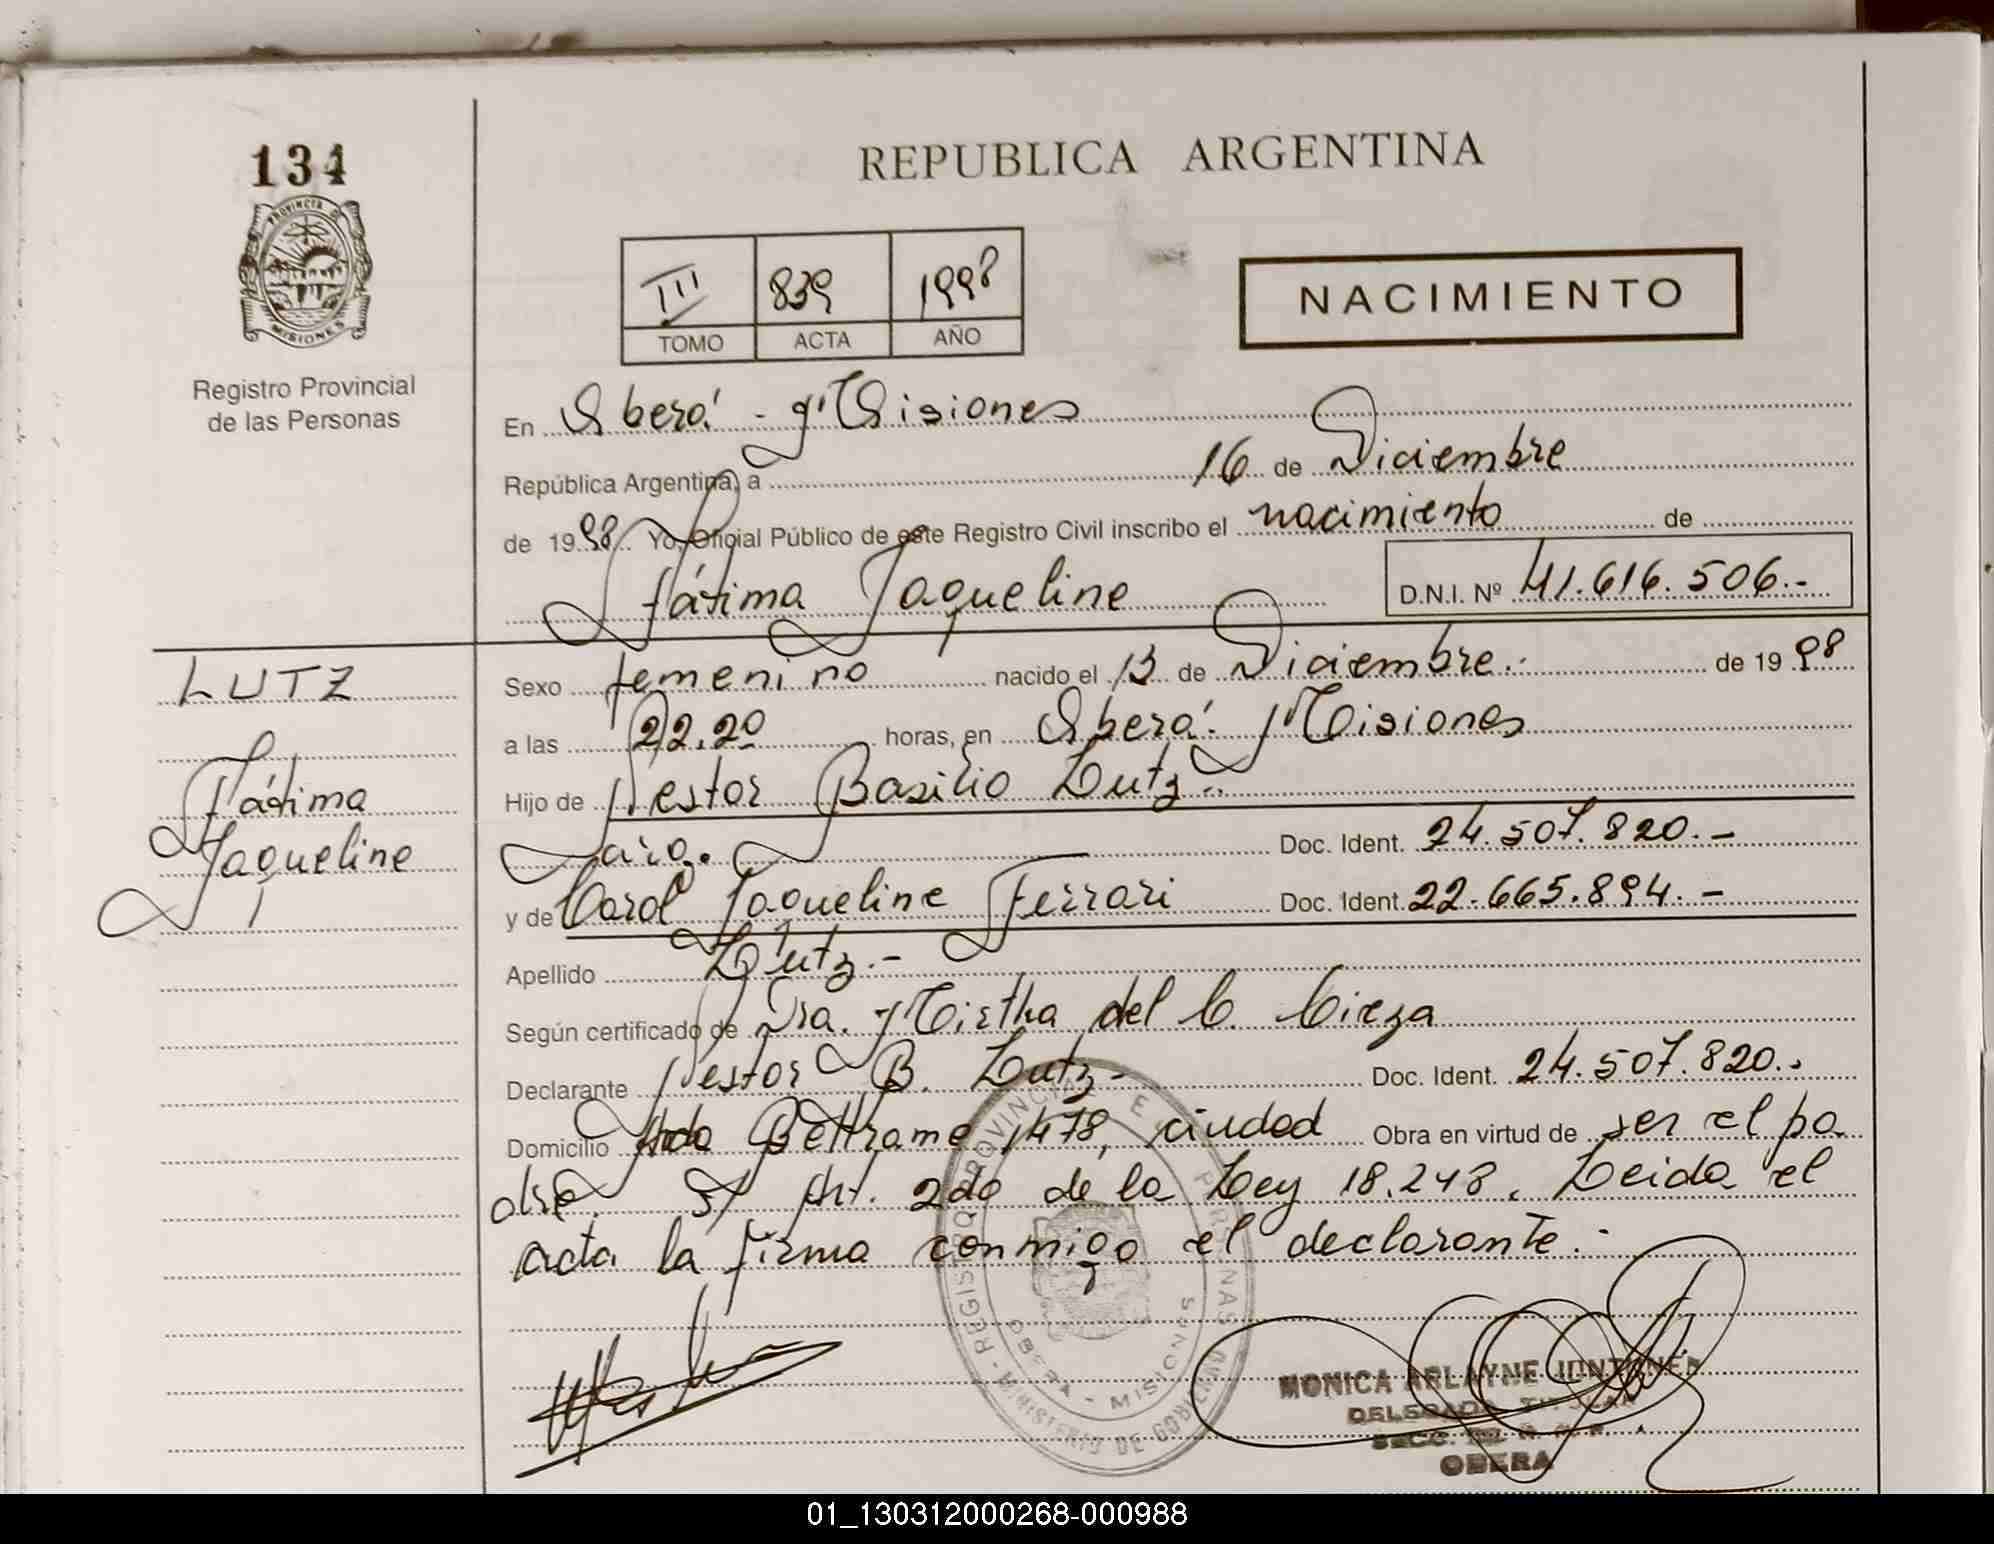 134
PROVINCIA DE
MISIONES
Registro Provincial
de las Personas
REPUBLICA ARGENTINA
III 839 1998
TOMO ACTA AÑO
NACIMIENTO
En Oberá - Misiones
República Argentina, a 16 de Diciembre
de 1998 Yo, Oficial Público de este Registro Civil inscribo el nacimiento de
Fátima Jaqueline D.N.I. Nº 41.616.506.-
LUTZ
Fátima
Jaqueline
Sexo femenino nacido el 13 de Diciembre.- de 1998
a las 22.20 horas, en Oberá. Misiones
Hijo de Nestor Basilio Lutz.
Doc. Ident. 24.507.820.-
y de Carol Jaqueline Ferrari Doc. Ident. 22.665.894.-
Apellido Lutz.-
Según certificado de Dra. Mirtha del C. Cieza
Declarante Nestor B. Lutz- Doc. Ident. 24.507.820.-
Domicilio Beltrame 1478, ciudad Obra en virtud de ser el pa
dre. S/ Art. 2do de la Ley 18.248. Leida el
acta la firma conmigo el declarante.-
REGISTRO PROVINCIAL DE PERSONAS
MINISTERIO DE GOBIERNO
OBERA - MISIONES
MONICA ARLAYNE
DELEGADA TITULAR
SECC.
OBERA
01_130312000268-000988